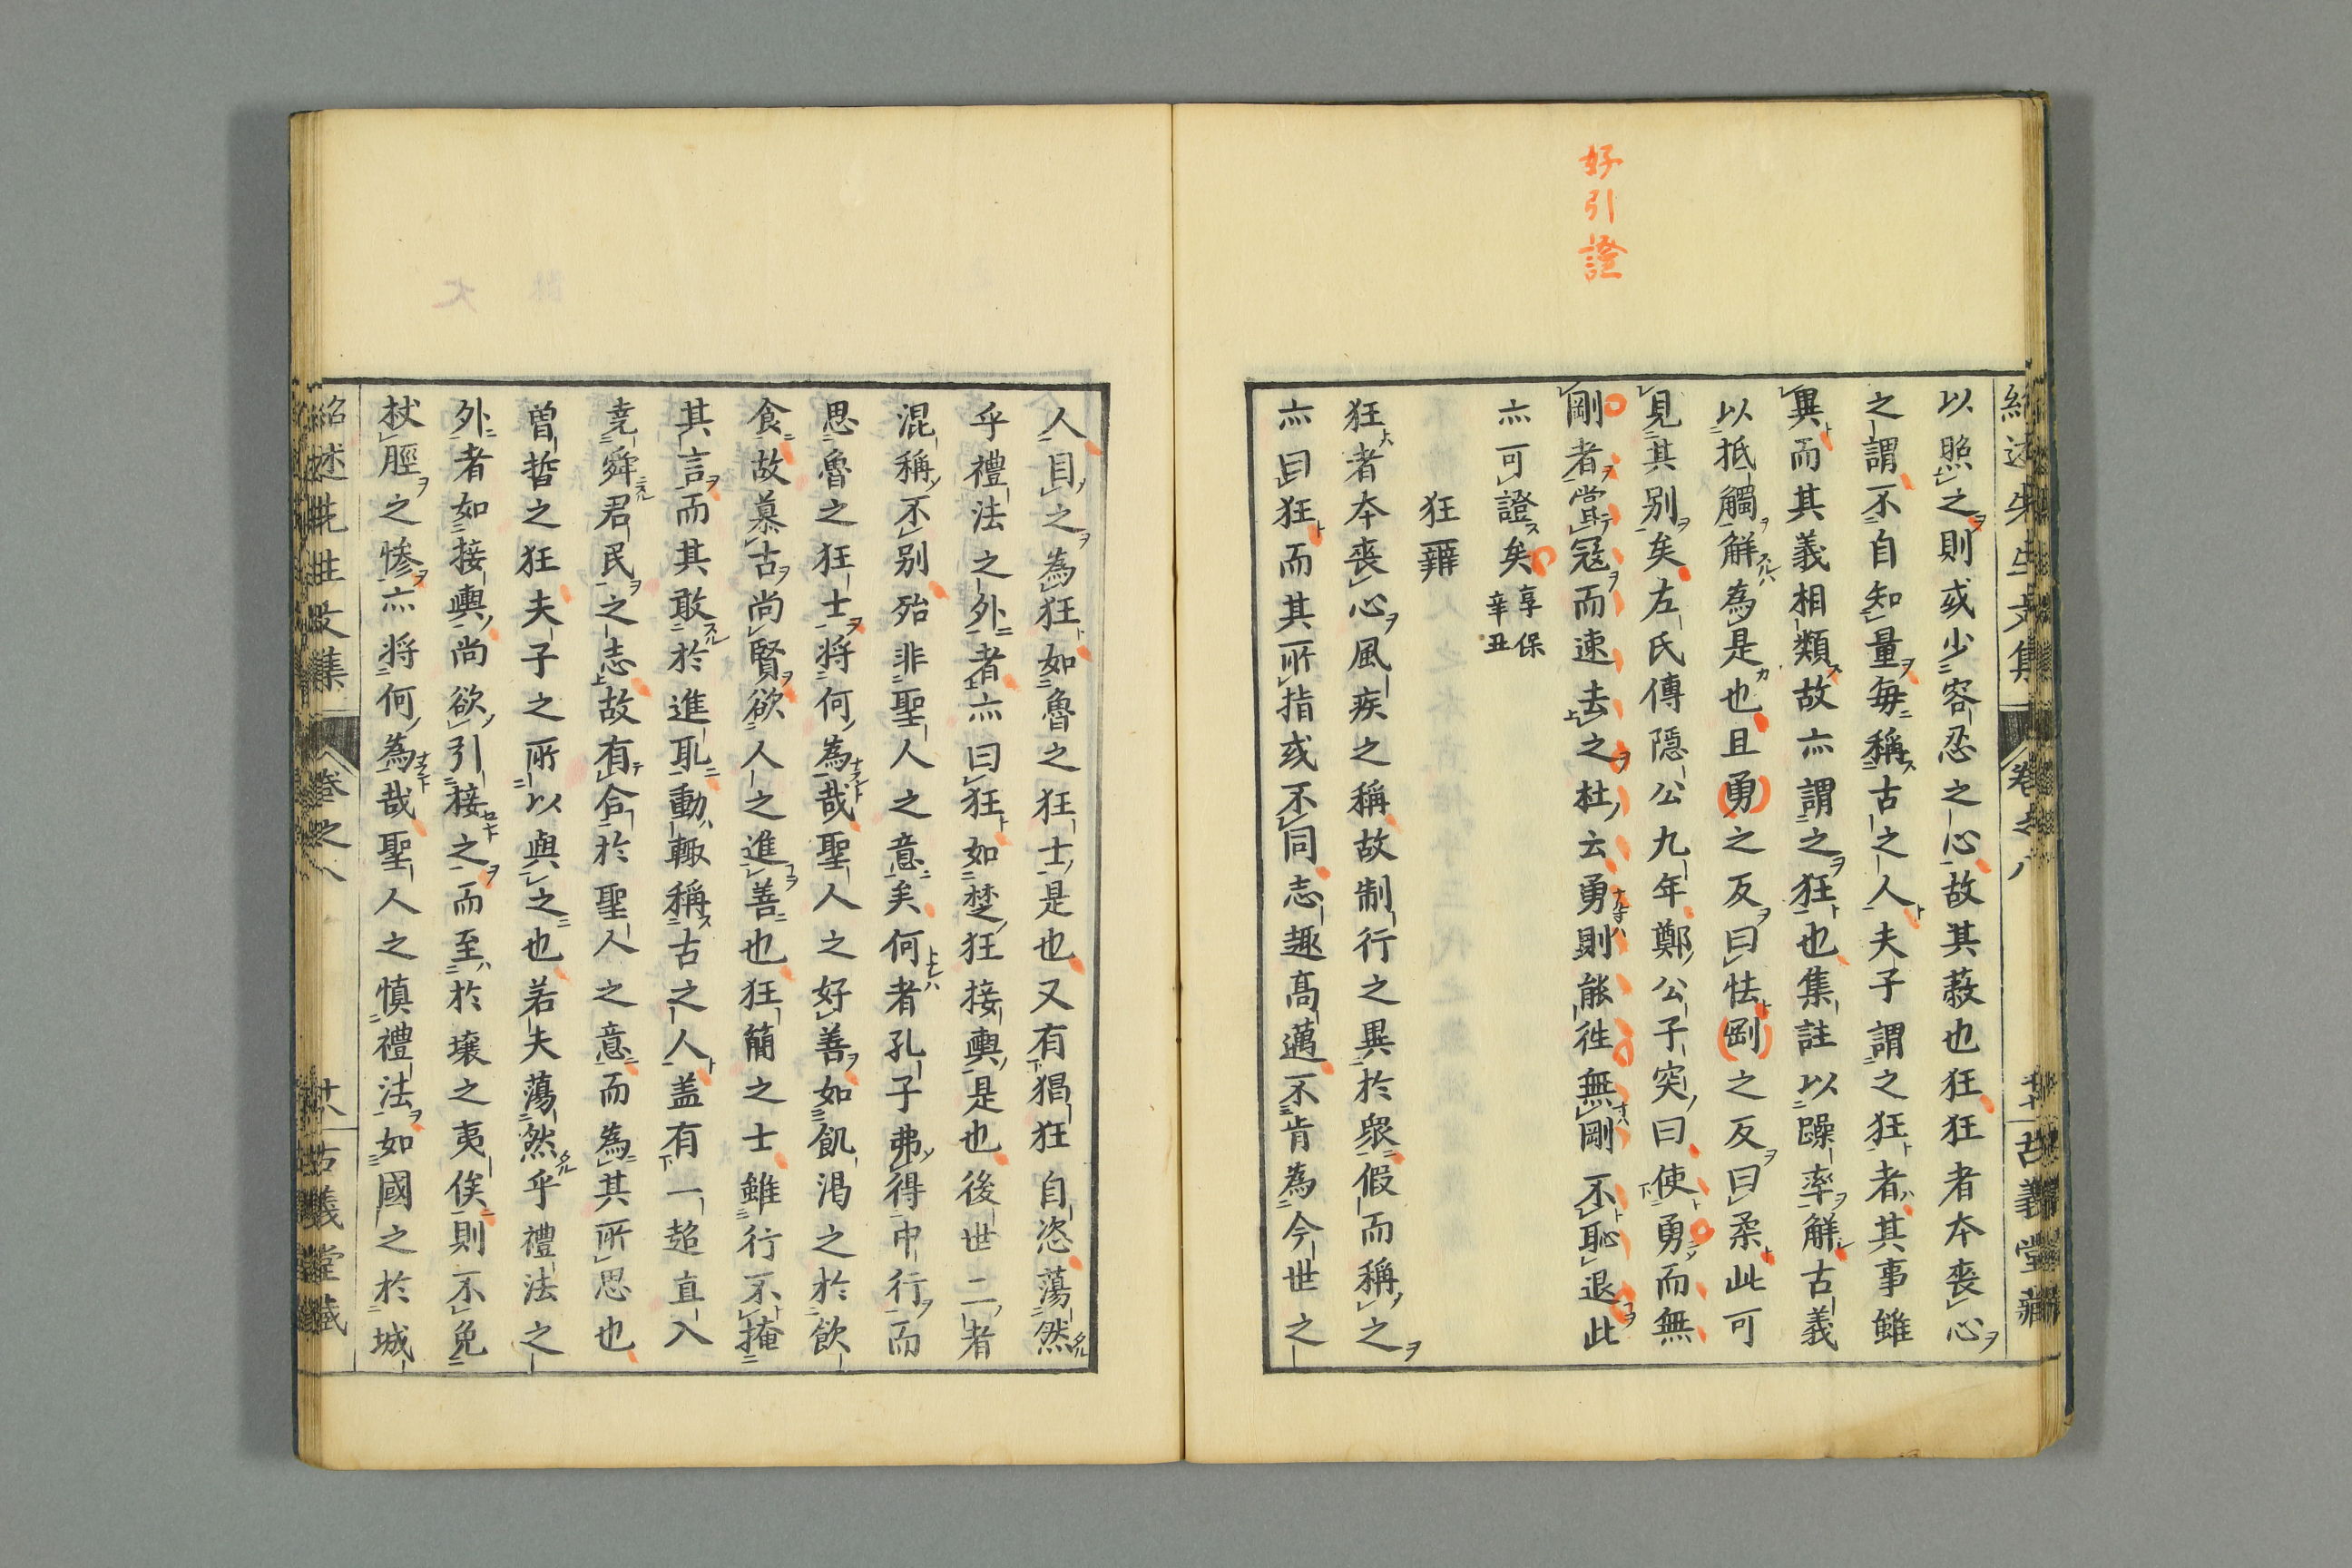 好引證
以照之則或少容忍之心故其蔽也狂狂者夲喪心
之謂不自知量毎稱古之人夫子謂之狂者其事雖
異而其義相類故亦謂之狂也集註以躁率解古義
以抵觸解為是也且勇之反曰怯剛之反曰柔此可
見其别矣左氏傳隠公九年鄭公子突曰使勇而無
剛者嘗冦而速去之杜云勇則能徃無剛不恥退此
亦可證矣 享保辛丑
狂辨
狂者夲喪心風疾之稱故制行之異於衆假而稱之
亦曰狂而其所指或不同志趣髙邁不肯為今世之
人目之為狂如魯之狂士是也又有猖狂自恣蕩然
乎禮法之外者亦曰狂如楚狂接輿是也後世二者
混稱不别殆非聖人之意矣何者孔子弗得中行而
思魯之狂士将何為哉聖人之好善如飢渇之於飲
食故慕古尚賢欲人之進善也狂簡之士雖行不掩
其言而其敢於進耻動輙稱古之人盖有一超直入
堯舜君民之志故有合於聖人之意而為其所思也
曽晳之狂夫子之所以與之也若夫蕩然乎禮法之
外者如接輿尚欲引接之而至於壌之夷俟則不免
杖脛之惨亦将何為哉聖人之慎禮法如國之於城
紹述先生文集 巻之八 古義堂藏